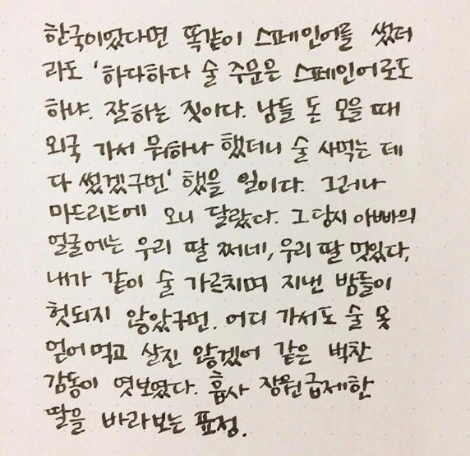 한국이었다면 똑같이 스페인어를 썼더
라도 '하다하다 술 주문은 스페인어로도
하냐. 잘하는 짓이다. 남들 돈 모을 때
외국 가서 뭐하나 했더니 술 사먹는 데
다 썼겠구먼' 했을 일이다. 그러나
마드리드에 오니 달랐다. 그 당시 아빠의
얼굴에는 우리 딸 쩌네, 우리 딸 멋있다,
내가 같이 술 가르치며 지낸 밤들이
헛되지 않았구먼. 어디 가서도 술 못
얻어먹고 살진 않겠어 같은 벅찬
감동이 엿보였다. 흡사 장원급제한
딸을 바라보는 표정.